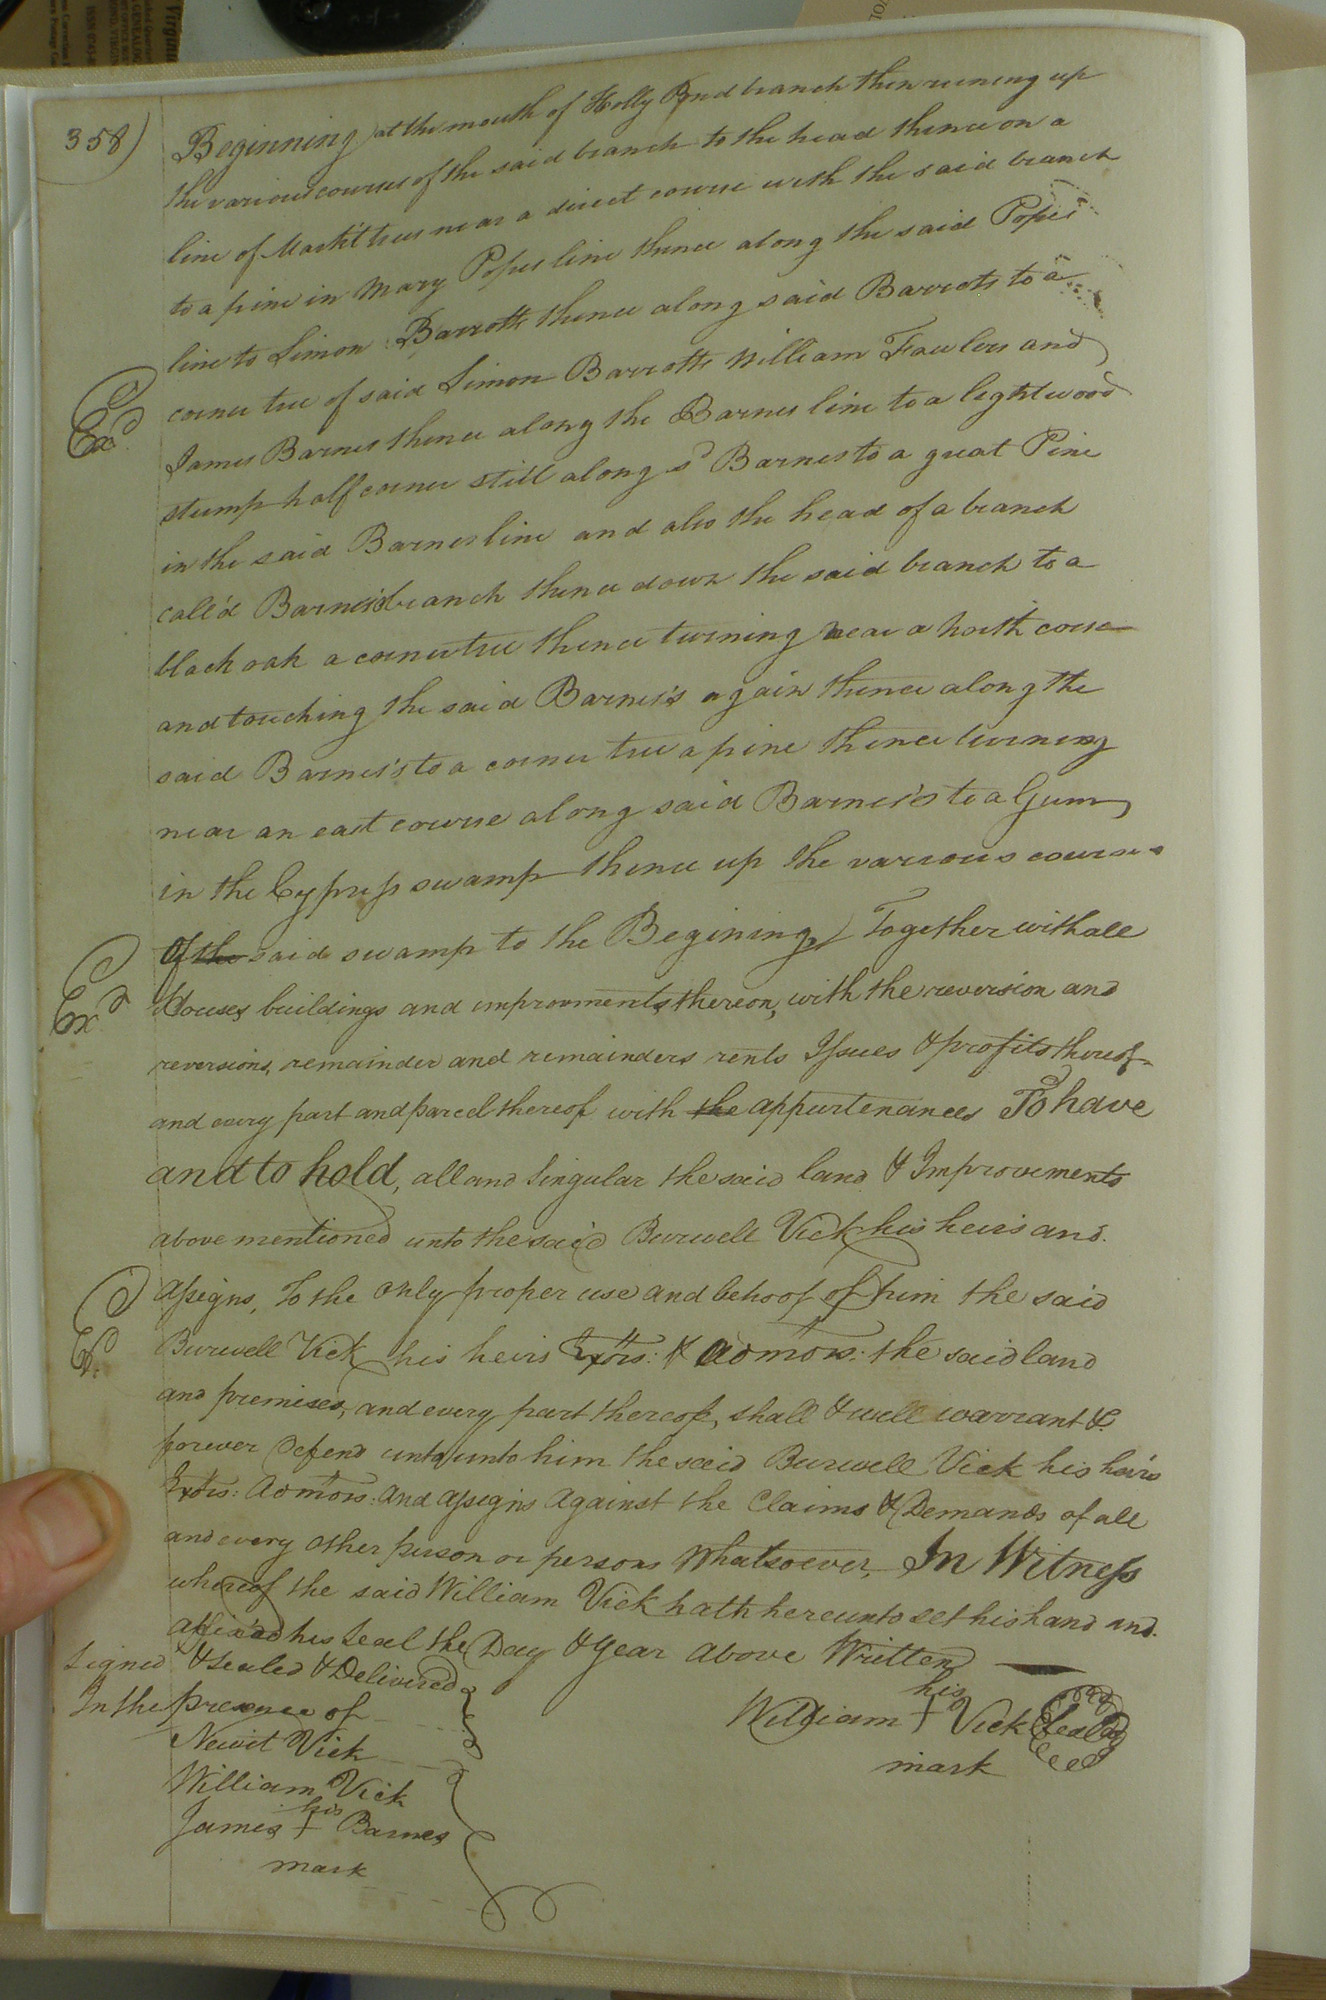 358)
Beginning at the mouth of Holly Pond branch then runing up
the various courses of the said branch to the head thence on a
line of Mark't trees near a direct course with the said branch
to a pine in Mary Popes line thence along the said Popes
line to Simon Barrotts thence along said Barrots to a
corner tree of said Simon Barrotts William Fowlers and
James Barnes thence along the Barnes line to a lightwood
stump half corner still along sd Barnes to a great Pine
in the said Barnes line and also the head of a branch
call'd Barnes's branch thence down the said branch to a
black oak a corner tree thence turning near a North corse
and touching the said Barnes's again thence along the
said Barnes's to a corner tree a pine thence turning
near an east course along said Barnes's to a Gum
in the Cypress swamp thence up the various courses
Of the said swamp to the Begining Together with all
Houses buildings and improvments thereon, with the reversion and
reversions, remainder and remainders rents Issues & profits thereof
and every part and parcel thereof with the appurtenances To have
and to hold, all and Singular the said land & Improvements
above mentioned unto the said Burwell Vick his heirs and
assigns, To the only proper use and behoof of him the said
Burwell Vick his heirs Extors: & Admors: the said land
and premises, and every part thereof, shall & will warrant &
forever Defend unto unto him the said Burwell Vick his heirs
Extors: Admors: and assigns Against the Claims & Demands of all
and every other person or persons Whatsoever In Witness
whereof the said William Vick hath hereunto set his hand and
affixed his Seal the Day & Year above Written
Signed & Sealed & Delivered
In the presence of
Newit Vick
William Vick
his
James + Barnes
mark
his
William + Vick Seal
mark
Exd
Exd
Ex.
Virginia